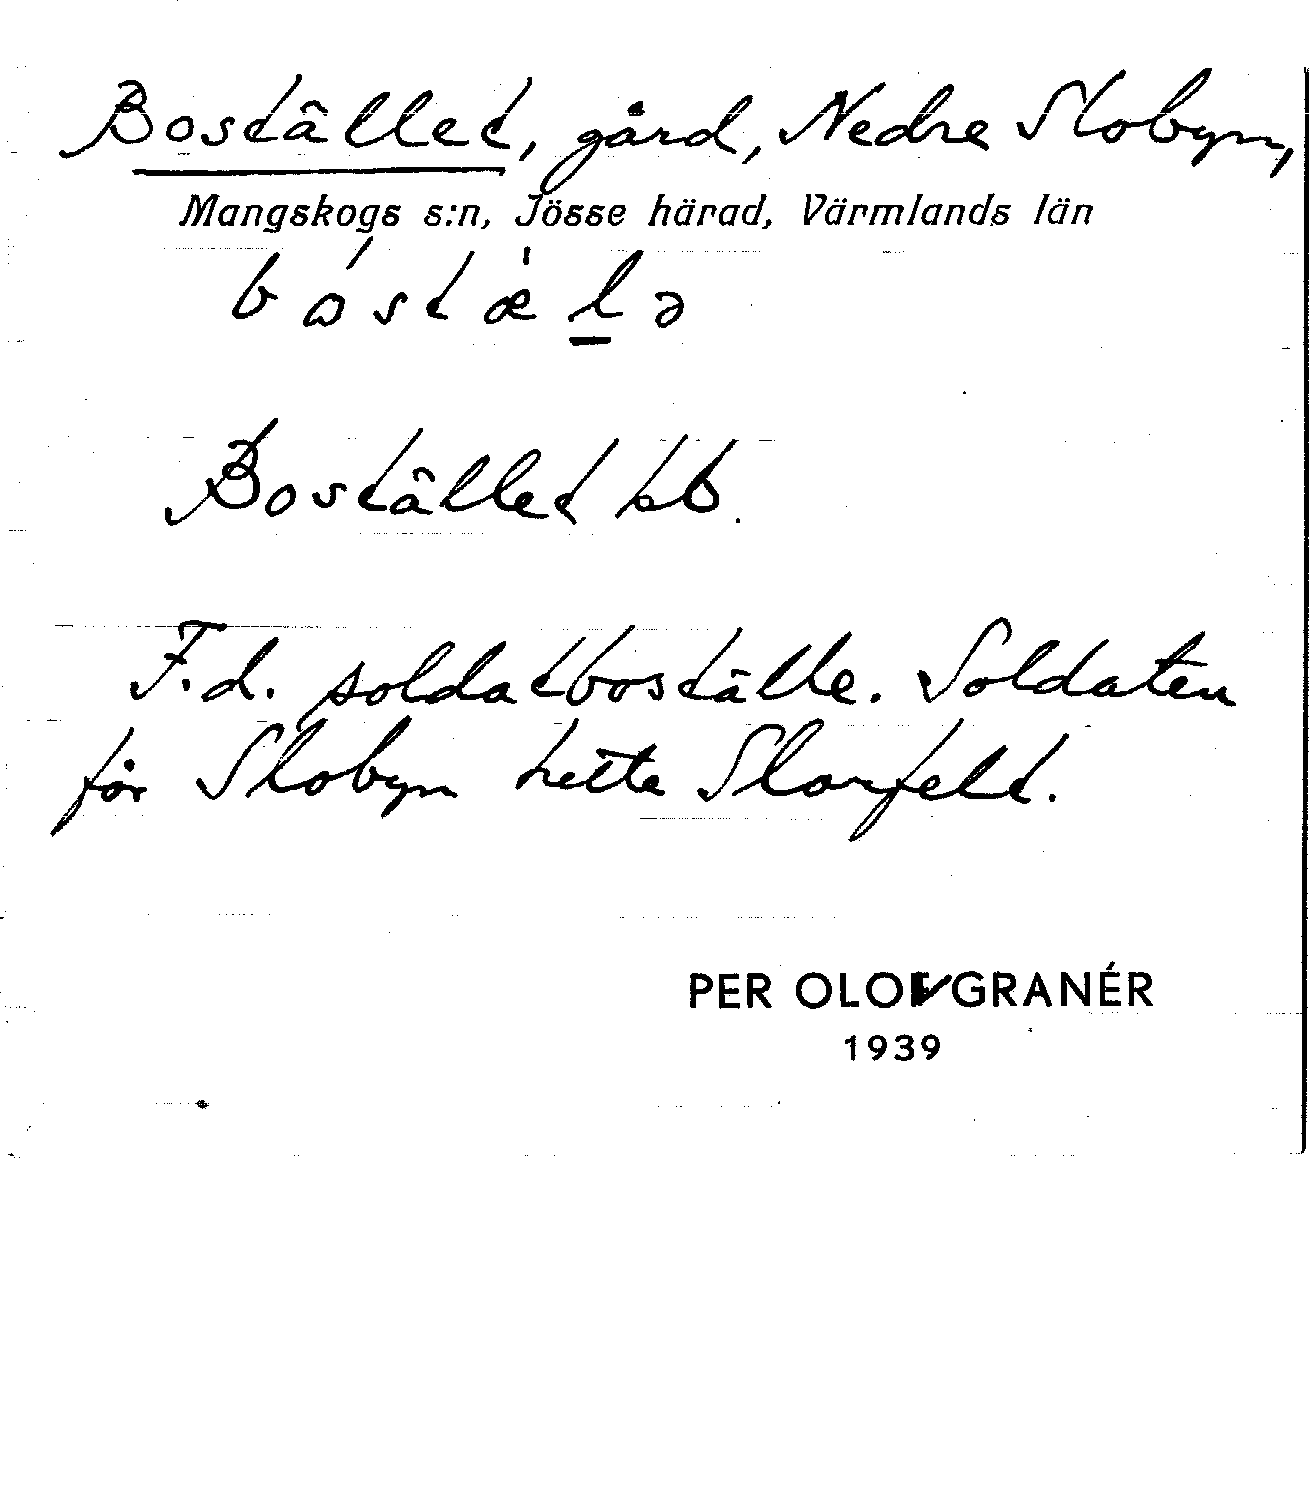 Bostället, gård, Nedre Slobyn,
Mangskogs s:n, Jösse härad, Värmlands län
Bostället kb.
F.d. soldatboställe. Soldaten
för Slobyn hette Slorfelt.
PER OLOV GRANÉR
1939